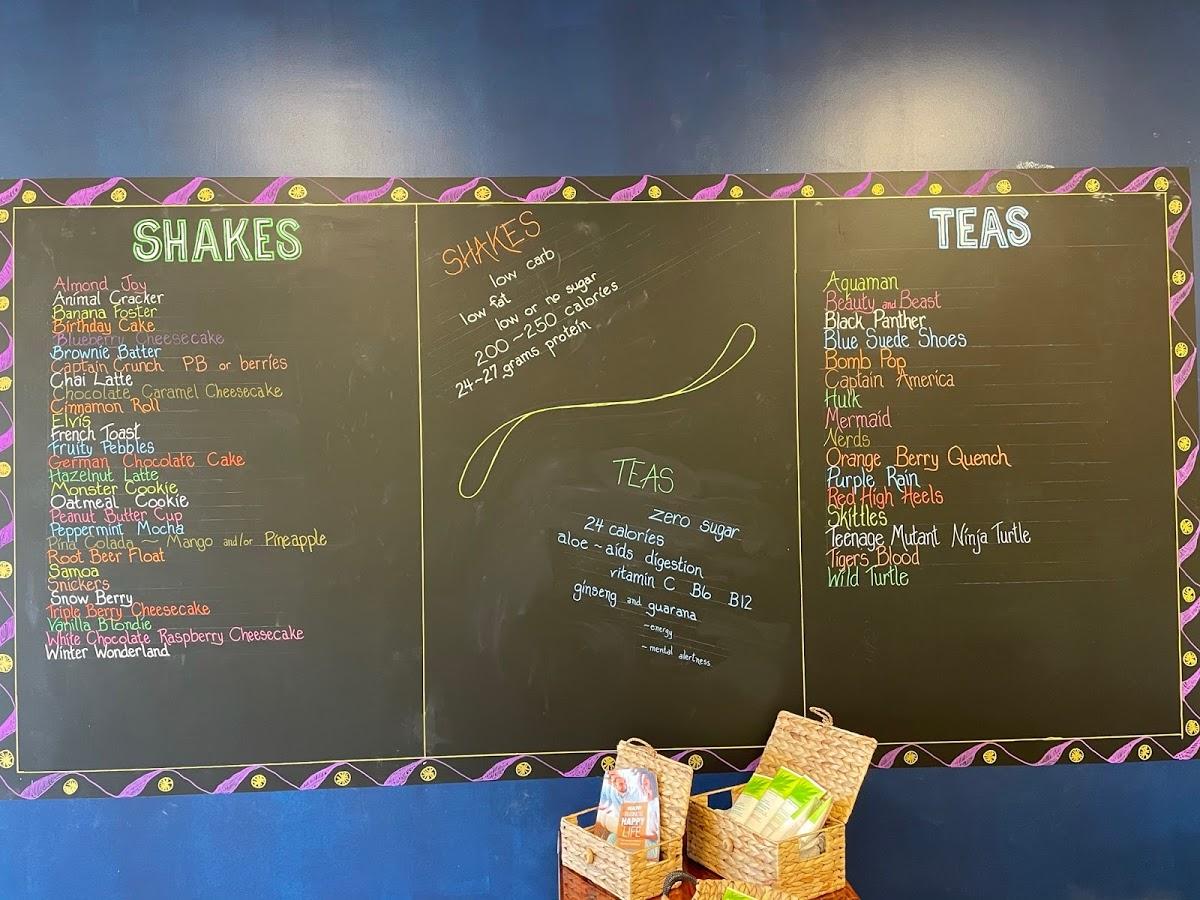 SHAKES
Almond Joy
Animal Cracker
Banana Foster
Birthday Cake
Blueberry Cheesecake
Brownie Batter
Captain Crunch PB or berries
Chai Latte
Chocolate Caramel Cheesecake
Cinnamon Roll
Elvis
French Toast
Fruity Pebbles
German Chocolate Cake
Hazelnut Latte
Monster Cookie
Oatmeal Cookie
Peanut Butter Cup
Peppermint Mocha
Pina Colada ~ Mango and/or Pineapple
Root Beer Float
Samoa
Snickers
Snow Berry
Triple Berry Cheesecake
Vanilla Blondie
White Chocolate Raspberry Cheesecake
Winter Wonderland
SHAKES
low carb
low fat
low or no sugar
200-250 calories
24-27 grams protein
TEAS
zero sugar
24 calories
aloe ~ aids digestion
vitamin C B6 B12
ginseng and guarana
- energy
- mental alertness
TEAS
Aquaman
Beauty and Beast
Black Panther
Blue Suede Shoes
Bomb Pop
Captain America
Hulk
Mermaid
Nerds
Orange Berry Quench
Purple Rain
Red High Heels
Skittles
Teenage Mutant Ninja Turtle
Tigers Blood
Wild Turtle
HEALTHY
HAPPY
LIFE